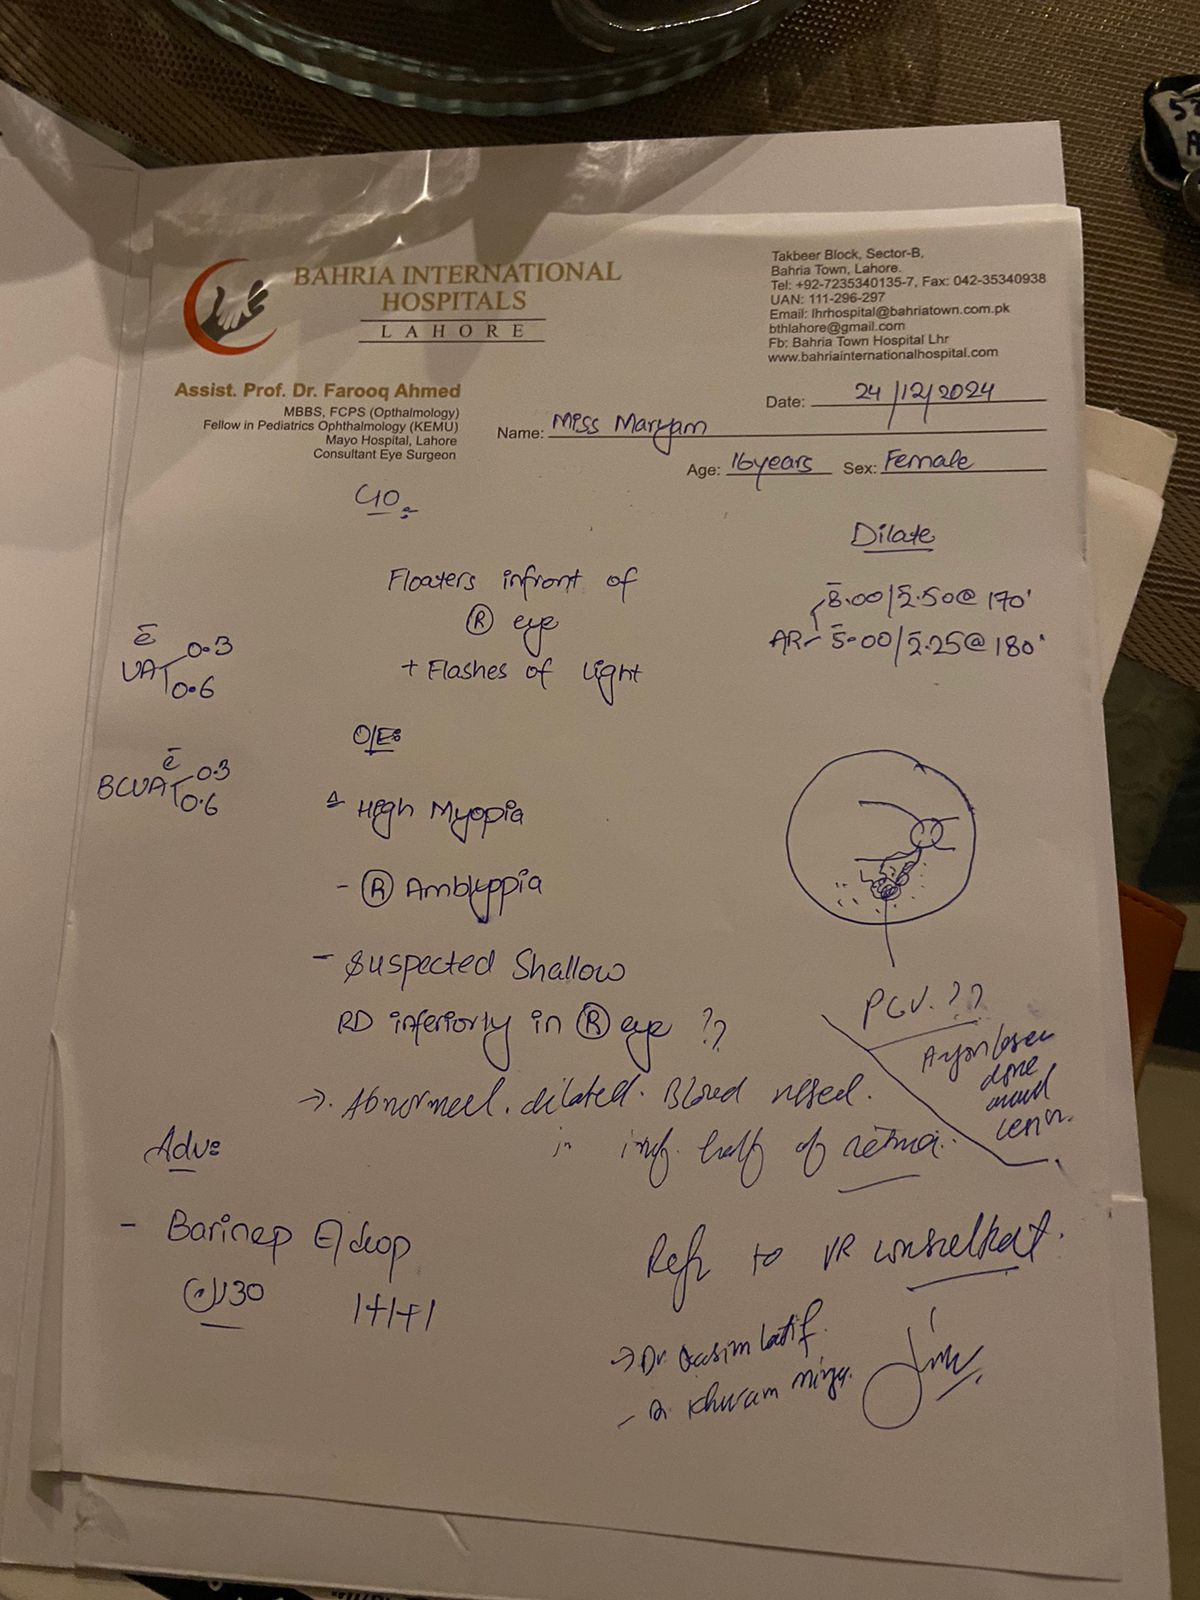 BAHRIA INTERNATIONAL
HOSPITALS
LAHORE
Takbeer Block, Sector-B,
Bahria Town, Lahore.
Tel: +92-7235340135-7, Fax: 042-35340938
UAN: 111-296-297
Email: lhrhospital@bahriatown.com.pk
bthlahore@gmail.com
Fb: Bahria Town Hospital Lhr
www.bahriainternationalhospital.com
Assist. Prof. Dr. Farooq Ahmed
MBBS, FCPS (Opthalmology)
Fellow in Pediatrics Ophthalmology (KEMU)
Mayo Hospital, Lahore
Consultant Eye Surgeon
Date: 24/12/2024
Name: Miss Maryam
Age: 16years Sex: Female
C/O:
Floaters infront of
Ⓡ eye
+ Flashes of light
Dilate
AR 8.00/2.50@ 170°
5.00/2.25@ 180°
c̄
UA 0.3
0.6
c̄
BCVA 0.3
0.6
O/E:
- High Myopia
- Ⓡ Amblyopia
- Suspected Shallow
RD inferiorly in Ⓡ eye ??
→ Abnormal dilated Blood vessel
in inf. half of retina.
??
Argon laser
done
Adv:
- Barinep E/drop
1+1+1
Refr to VR consultant.
→ Dr. Qasim Latif